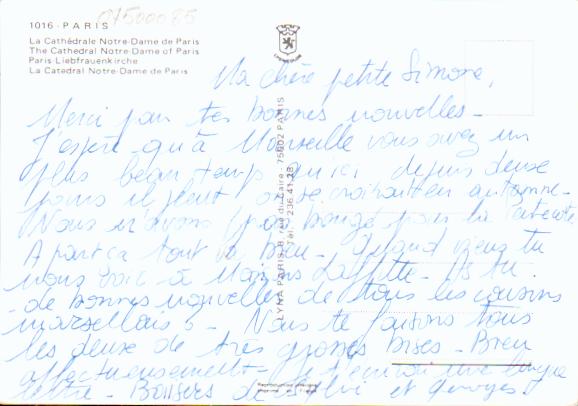 07500085
1016 - PARIS
La Cathédrale Notre-Dame de Paris
The Cathedral Notre-Dame of Paris
Paris-Liebfrauenkirche
La Catedral Notre-Dame de Paris
LYNA PARIS
75002 PARIS
Tél. : 236.41.28
Ma chère petite Simone,
Merci pour tes bonnes nouvelles -
J'espère qu'à Marseille vous avez un
plus beau temps qu'ici depuis deux
jours il pleut on se croirait en automne -
Nous n'avons pas bougé pour la
A part ça tout va bien - Quand viens tu
nous voir à Maisons Laffitte - As tu
de bonnes nouvelles de tous les cousins
marseillais - Nous te faisons tous
les deux de très grosses bises - Bien
affectueusement - Je t'écrirai une longue
lettre - Baisers de et Georges